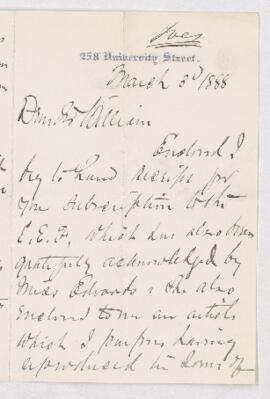 258 University Street.
March 3d/1888
Dear Sir William
Enclosed I
beg to hand receipt for
your subscription to the
E. E. F. which has also been
gratefully acknowledged by
Miss Edwards & she also
enclosed to me an article
which I purpose having
reproduced in some of